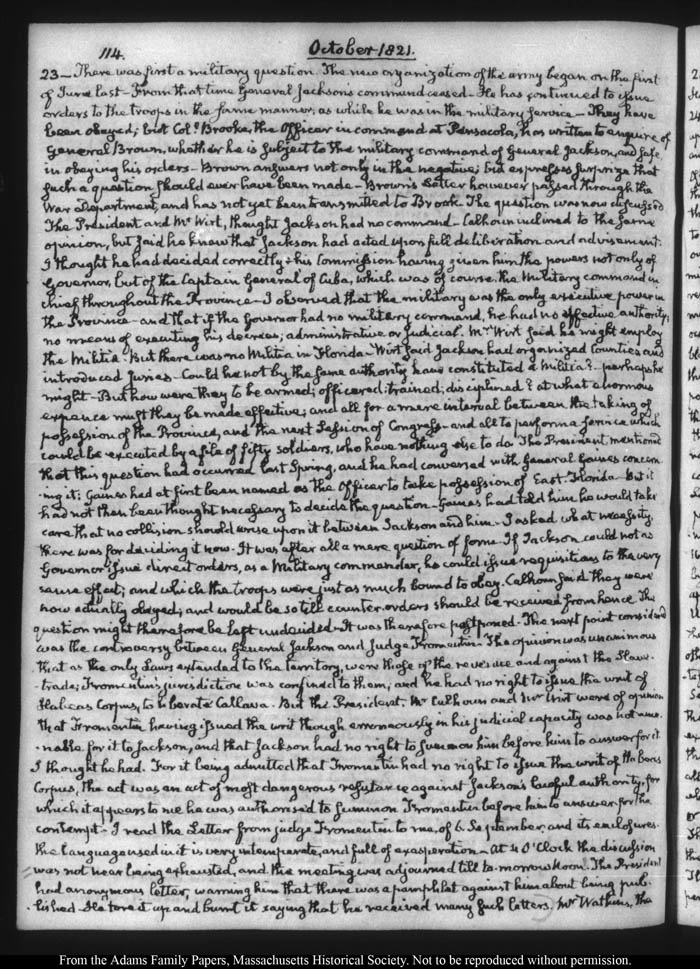 114.
October 1821.
23 — There was first a military question. The new organization of the army began on the first
of June last — From that time General Jackson's command ceased — He has continued to issue
orders to the troops in the same manner, as while he was in the military service — They have
been obeyed; but Col.l Brooke, the Officer in command at Pensacola, has written to enquire of
General Brown, whether he is subject to the military command of General Jackson, and safe
in obeying his orders — Brown answers not only in the negative; but expresses surprize that
such a question should ever have been made — Brown's Letter however passed through the
War Department, and has not yet been transmitted to Brook. The question was now discussed
The President and Mr Wirt, thought Jackson had no command — Calhoun inclined to the same
opinion, but said he knew that Jackson had acted upon full deliberation and advisement.
I thought he had decided correctly; his Commission having given him the powers not only of
Governor, but of the Captain General of Cuba, which was of course the Military command in
chief throughout the Province — I observed that the military was the only executive power in
the Province — and that if the Governor had no military command, he had no effective authority;
no means of executing his decrees, administrative or judicial. Mr Wirt said he might employ
the Militia. But there was no Militia in Florida — Wirt said Jackson had organized Counties and
introduced Juries — Could he not by the same authority have constituted a Militia? — perhaps he
might — But how were they to be armed; officered; trained; disciplined? at what enormous
expence must they be made effective; and all for a mere interval between the taking of
possession of the Province, and the next Session of Congress — and all to perform a service which
could be executed by a file of fifty soldiers, who have nothing else to do. The President mentioned
that this question had occurred last Spring, and he had conversed with General Gaines concern-
-ing it; Gaines had at first been named as the Officer to take possession of East-Florida — But it
had not then been thought necessary to decide the question — Gaines had told him he would take
care that no collision should arise upon it between Jackson and him — I asked what necessity
there was for deciding it now. It was after all a mere question of form. If Jackson could not as
Governor issue direct orders, as a Military commander, he could issue requisitions to the very
same effect; and which the troops were just as much bound to obey. Calhoun said they were
now actually obeyed; and would be so till counter-orders should be received from hence. The
question might therefore be left undecided — It was therefore postponed. The next point considered
was the controversy between General Jackson and Judge Fromentin — The opinion was unanimous
that as the only Laws extended to the territory, were those of the revenue and against the Slave-
-trade; Fromentin's jurisdiction was confined to them, and he had no right to issue the writ of
Habeas Corpus, to liberate Callava. But the President, Mr Calhoun and Mr Wirt were of opinion
that Fromentin having issued the writ though erroneously in his judicial capacity was not ame-
-nable for it to Jackson, and that Jackson had no right to summon him before him to answer for it.
I thought he had. For it being admitted that Fromentin had no right to issue the writ of Habeas
Corpus, the act was an act of most dangerous resistance against Jackson's lawful authority, for
which it appears to me he was authorised to summon Fromentin before him to answer for the
contempt — I read the Letter from judge Fromentin to me, of 6. September, and its enclosures.
the language used in it is very intemperate, and full of exasperation — At 4 O'Clock the discussion
was not near being exhausted, and the meeting was adjourned till to-morrow Noon. The President
had anonymous letter, warning him that there was a pamphlet against him about being pub-
-lished — He tore it up and burnt it saying that he received many such letters. Mr Watkins, the
From the Adams Family Papers, Massachusetts Historical Society. Not to be reproduced without permission.